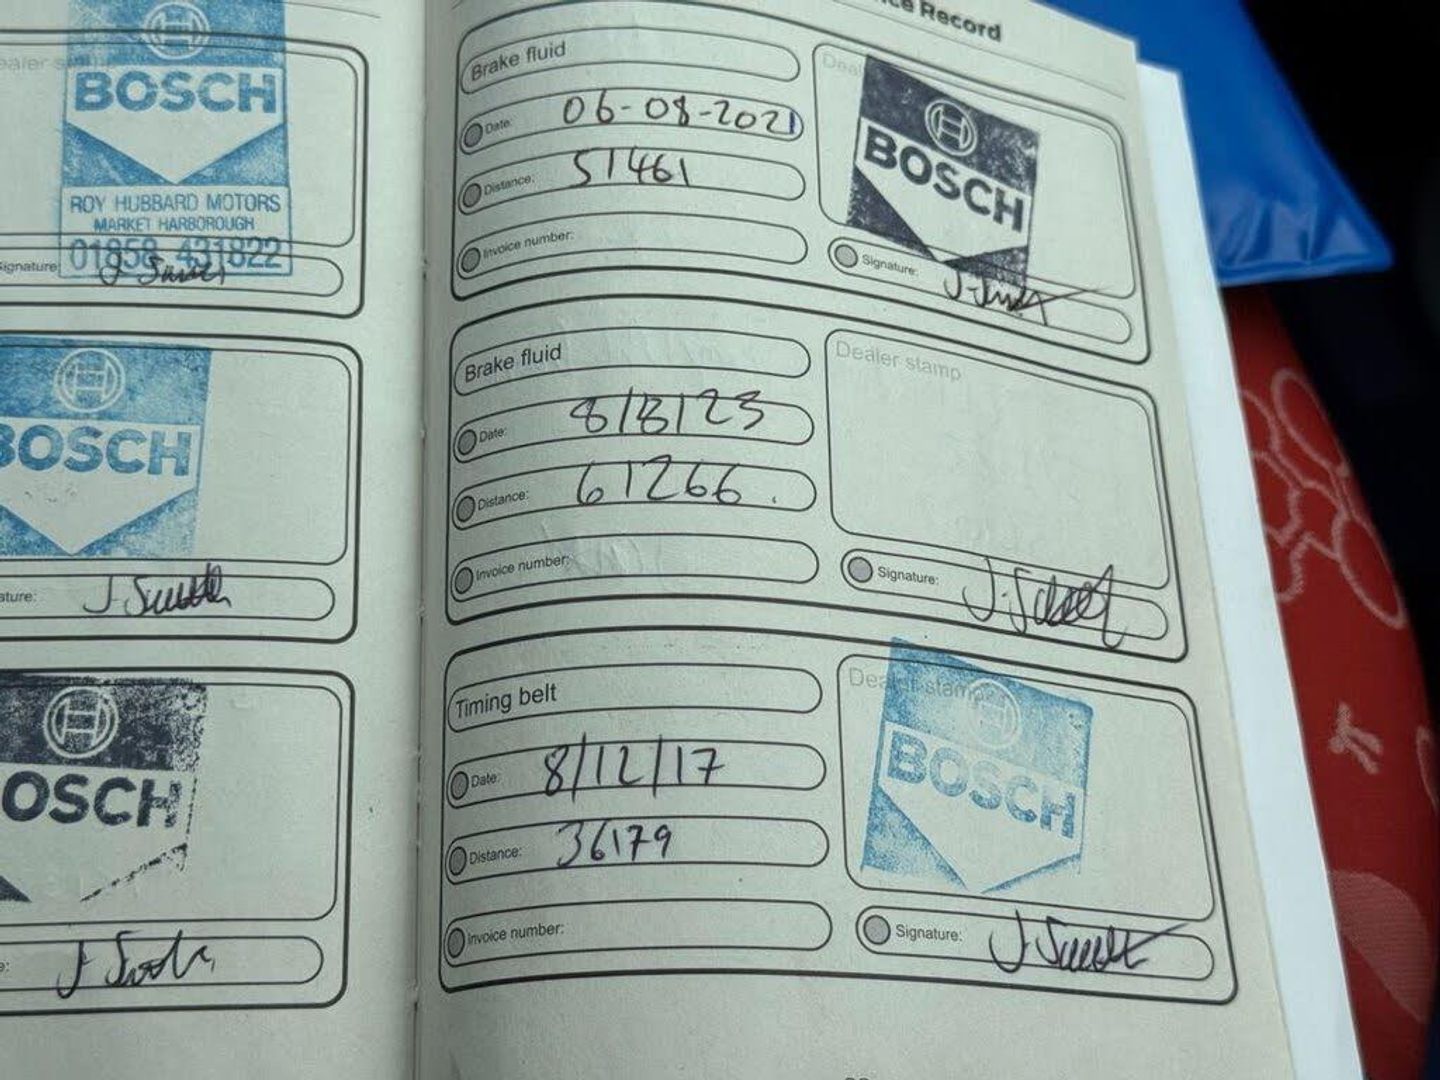 BOSCH
ROY HUBBARD MOTORS
MARKET HARBOROUGH
01858 431822
Signature
BOSCH
ature:
OSCH
e:
ce Record
Brake fluid
Date: 06-08-2021
Distance: 51461
Invoice number:
Deal
BOSCH
Signature:
Brake fluid
Date: 8/8/23
Distance: 61266.
Invoice number:
Dealer stamp
Signature:
Timing belt
Date: 8/12/17
Distance: 36179
Invoice number:
Dealer stamp
BOSCH
Signature: